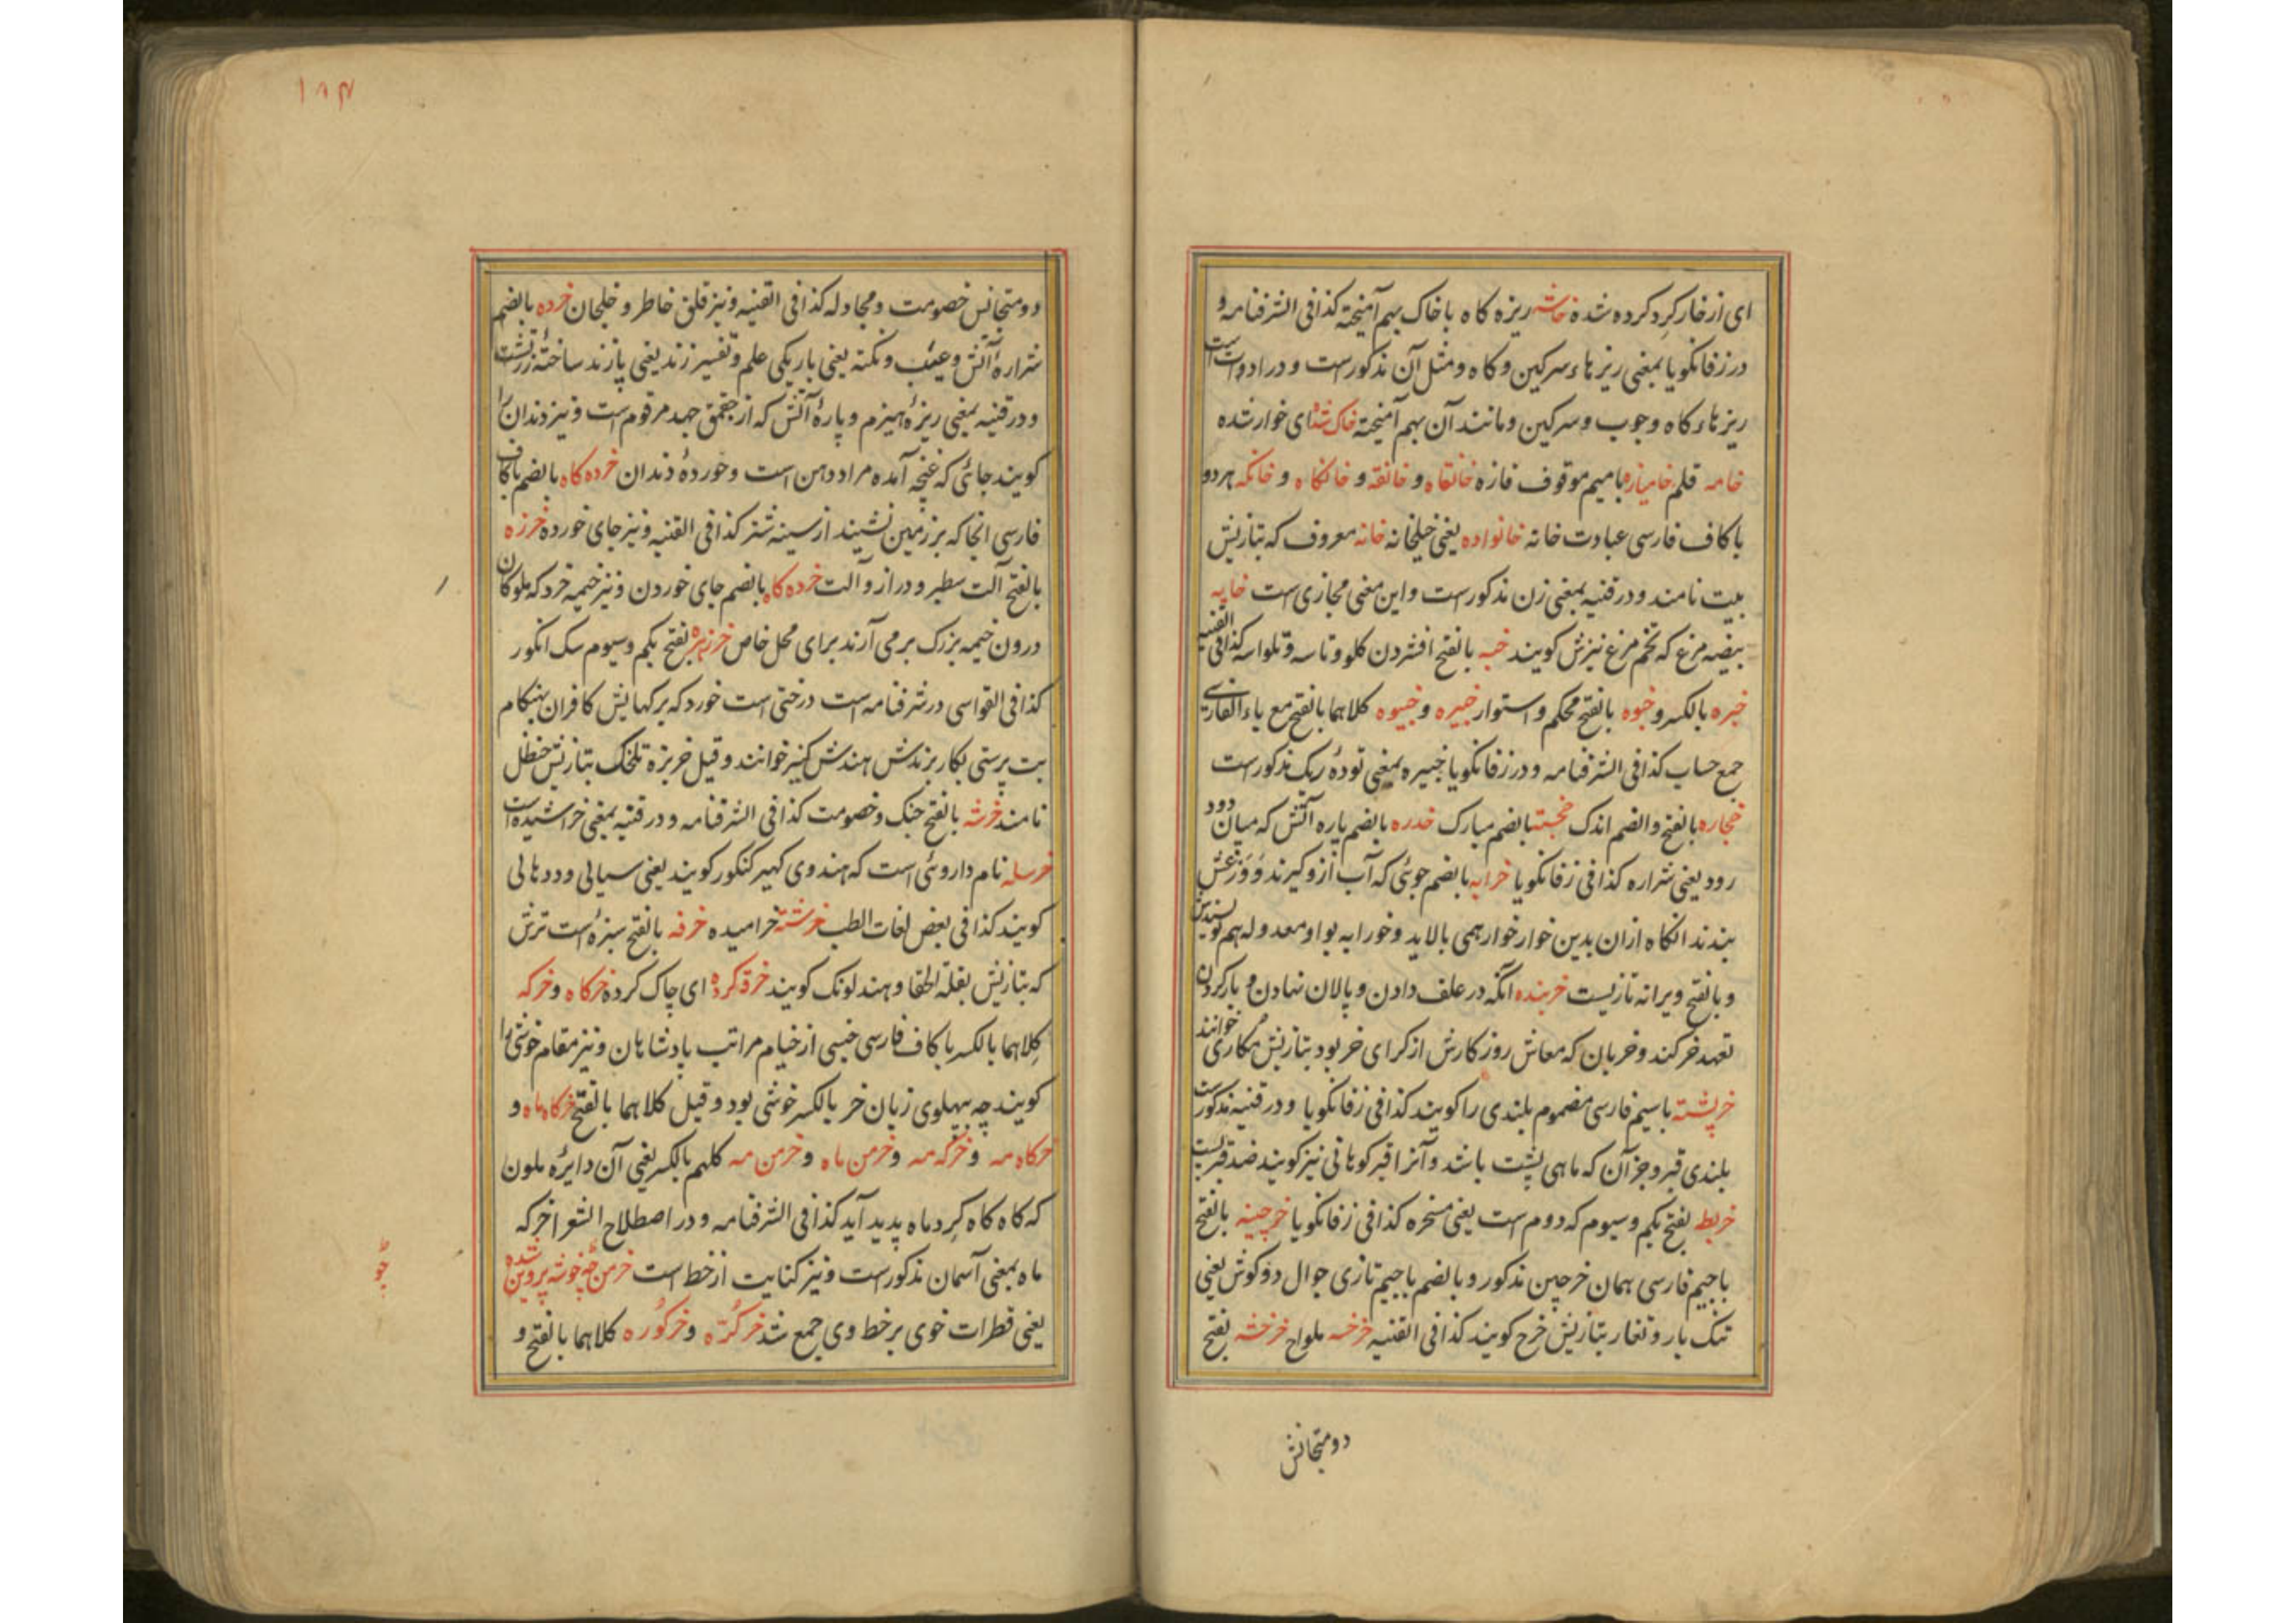 ای از خار کرد کرده شده خاشه ریزه کاه با خاک بهم آمیخته کذا فی الشرفنامه و
در زفانکویا بمعنی ریزهاء سرکین و کاه و مثل آن مذکورست و در ادوات است
ریزهاء کاه و چوب و سرکین و مانند آن بهم آمیخته خاک شده ای خوار شده
خامه قلم خامیازه با میم موقوف فازه خانقاه و خانقه و خانکاه و خانکه هر دو
با کاف فارسی عبادت خانه خانواده یعنی خیلخانه خانه معروف که بتازیش
بیت نامند و در قنیه بمعنی زن مذکورست و این معنی مجازی ست خایه
بیضه مرغ که تخم مرغ نیزش کویند خبه بالفتح افشردن کلو و تاسه و تلواسه کذا فی القنیه
خبره بالکسر و خبوه بالفتح محکم و استوار خبیره و خبیوه کلاهما بالفتح مع یاء الفارسی
جمع حساب کذا فی الشرفنامه و در زفانکویا خبیره بمعنی تودهٔ ریک مذکورست
خجاره بالفتح والضم اندک خجسته بالضم مبارک خدره بالضم پاره آتش که میان دود
رود یعنی شراره کذا فی زفانکویا خرابه بالضم جوئی که آب ازو کیرند و
بندند انکاه ازان بدین خوار خوار همی بالاید و خورابه بواو معدوله هم نویسندش
و بالفتح ویرانه تازیست خربنده آنکه در علف دادن و پالان نهادن و بار کردن
تعهد خر کند و خربان که معاش روز کارش از کرای خر بود بتازیش مکاری خوانند
خرپشته با سیم فارسی مضموم بلندی را کویند کذا فی زفانکویا و در قنیه مذکورست
بلندی قبر و جز آن که ماهی پشت باشد و آنرا قبر کوهانی نیز کویند ضد قبر پست
خربطه بفتح یکم و سیوم که دوم ست یعنی مسخره کذا فی زفانکویا خرچینه بالفتح
با جیم فارسی همان خرچین مذکور و بالضم با جیم تازی جوال دو کوش یعنی
تنک بار و تغار بتازیش خرج کویند کذا فی القنیه خرخسه ملواح خرخشه بفتح
دو متجانش
۱۸۴
دو متجانس خصومت و مجادله کذا فی القنیه و نیز قلق خاطر و خلجان خرده بالضم
شرارهٔ آتش و عیب و نکته یعنی باریکی علم و تفسیر زند یعنی پازند ساختهٔ زرتشت
و در قنیه بمعنی ریزهٔ هیزم و پارهٔ آتش که از چقمق جهد مرقوم است و نیز دندان را
کویند جائی که غنچه آمده مراد دهن است و خوردهٔ دندان خرده کاه بالضم با کاف
فارسی انجا که بر زمین نشیند از سینه شتر کذا فی القنیه و نیز جای خورده خرزه
بالفتح آلت سطبر و دراز و آلت خرده کاه بالضم جای خوردن و نیز خیمه خرد که ملوکان
درون خیمه بزرک بر می آرند برای محل خاص خرزهره بفتح یکم و سیوم سک انکور
کذا فی القواسی در شرفنامه است درختی است خورد که برکهایش کافران بهنکام
بت پرستی بکار برندش هندش کنیر خوانند و قیل خربزه تلخک بتازیش حنظل
نامند خرشه بالفتح جنک و خصومت کذا فی الشرفنامه و در قنیه بمعنی خراشیده است
خرسله نام داروئی است که هندوی کهیر کنکور کویند یعنی سیالی و دودهالی
کویند کذا فی بعض لغات الطب خرشته خرامیده خرفه بالفتح سبزهٔ است ترش
که بتازیش بقلة الحمقا و هند لونک کویند خرقه کرده ای چاک کرده خرکاه و خرکه
کلاهما بالکسر با کاف فارسی جنسی از خیام مراتب پادشاهان و نیز مقام خوشی را
کویند چه بپهلوی زبان خر بالکسر خوشی بود و قیل کلاهما بالفتح خرکاه ماه و
خرکاه مه و خرکه مه و خرمن ماه و خرمن مه کلهم بالکسر یعنی آن دایره ملون
که کاه کاه کرد ماه پدید آید کذا فی الشرفنامه و در اصطلاح الشعرا خرکه
ماه بمعنی آسمان مذکورست و نیز کنایت از خط است خرمن چه خوشه پروین شده
یعنی قطرات خوی بر خط وی جمع شد خرکره و خرکوره کلاهما بالفتح و